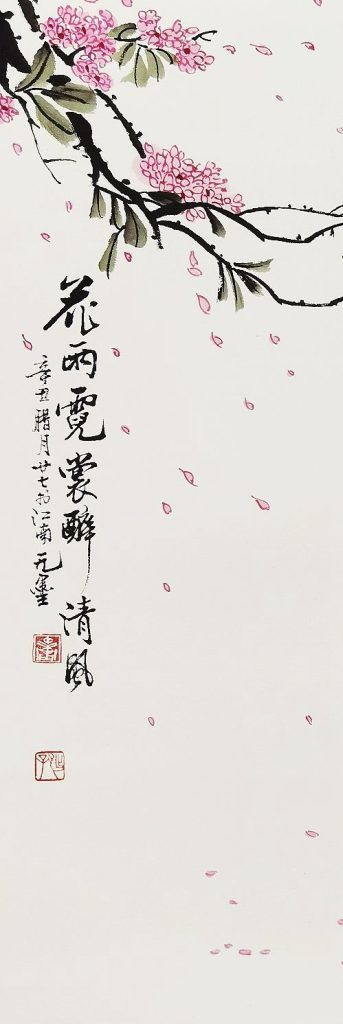 花雨霓裳醉清风
辛丑腊月廿七于江南元墨